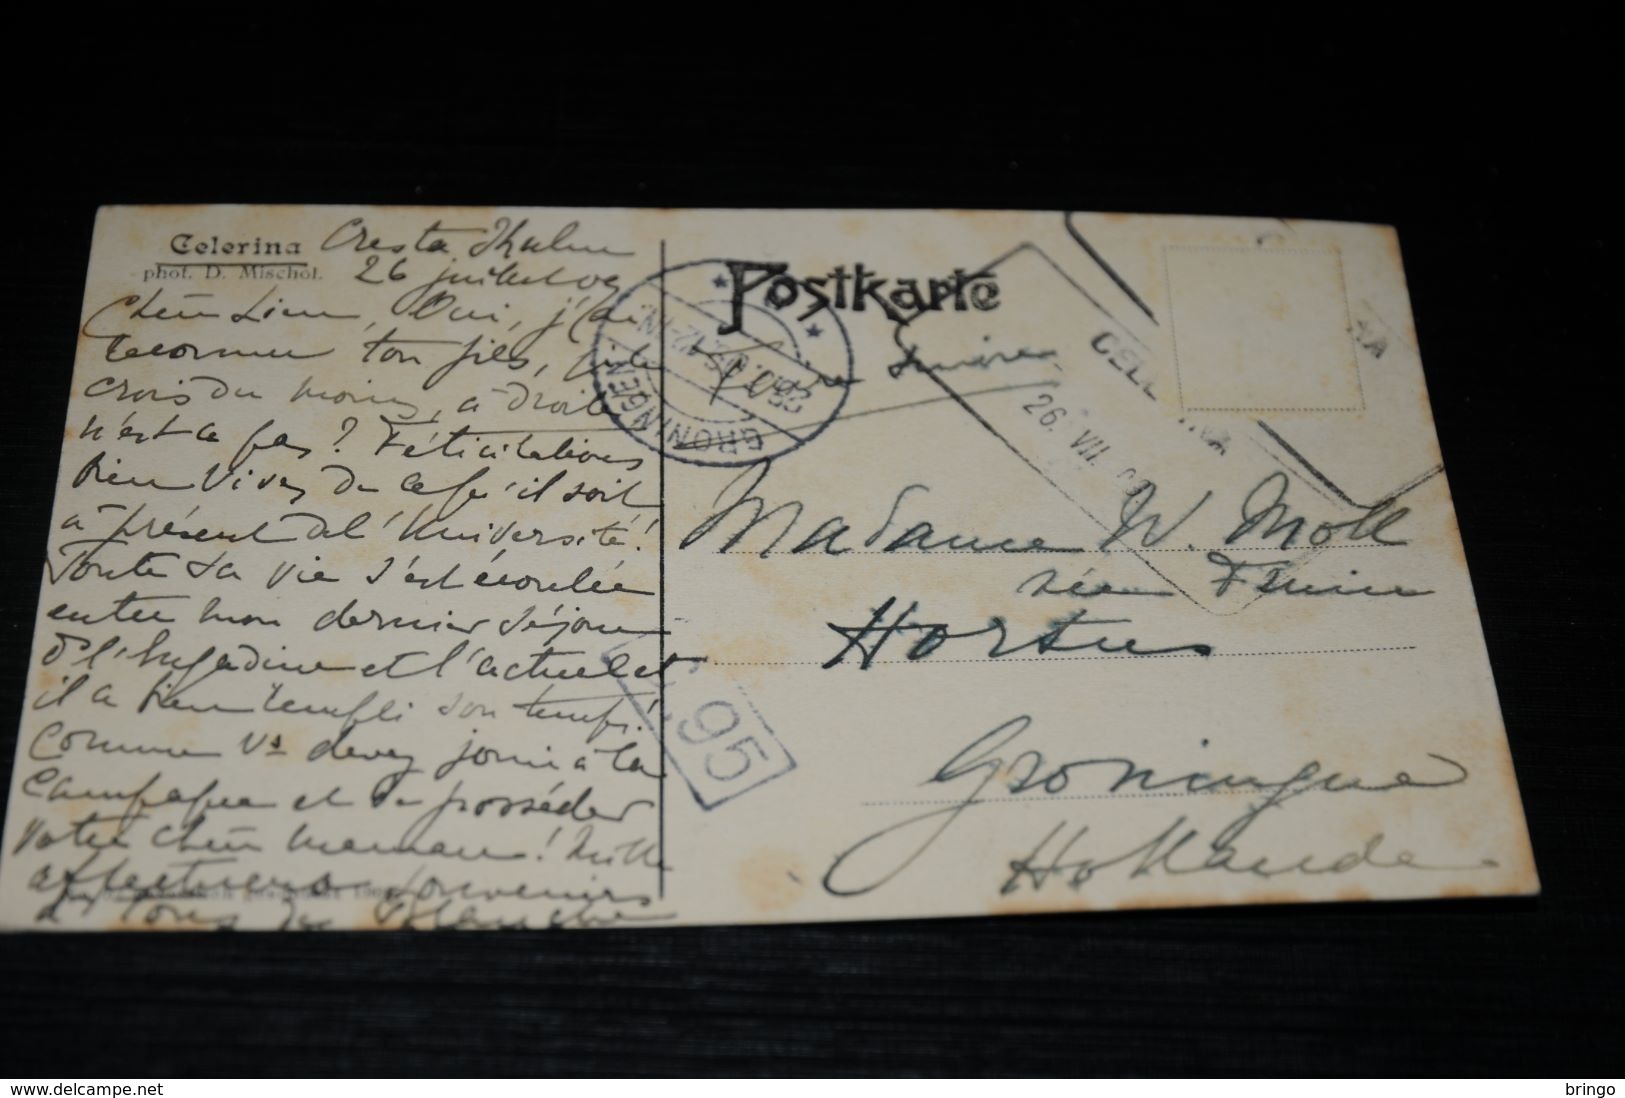 Celerina
phot. D. Mischol.
Cresta Kulm
26 juillet 09
Postkarte
Oui, j'ai
reconnu ton fils, je le
crois du moins, à droite
n'est ce pas? Félicitations
bien vives de ce qu'il soit
à présent à l'Université!
Toute sa vie s'est écoulée
entre mon dernier séjour
à l'Engadine et l'actuel et
il a bien rempli son temps!
Comme vs devez jouir à la
campagne et de posséder
votre chère maman! Mille
affectueux souvenirs
à tous de Blanche
Madame W. Moll
Hortus
Groningue
Hollande
GRONINGEN
26. VII. 09
95
delcampe.net
bringo